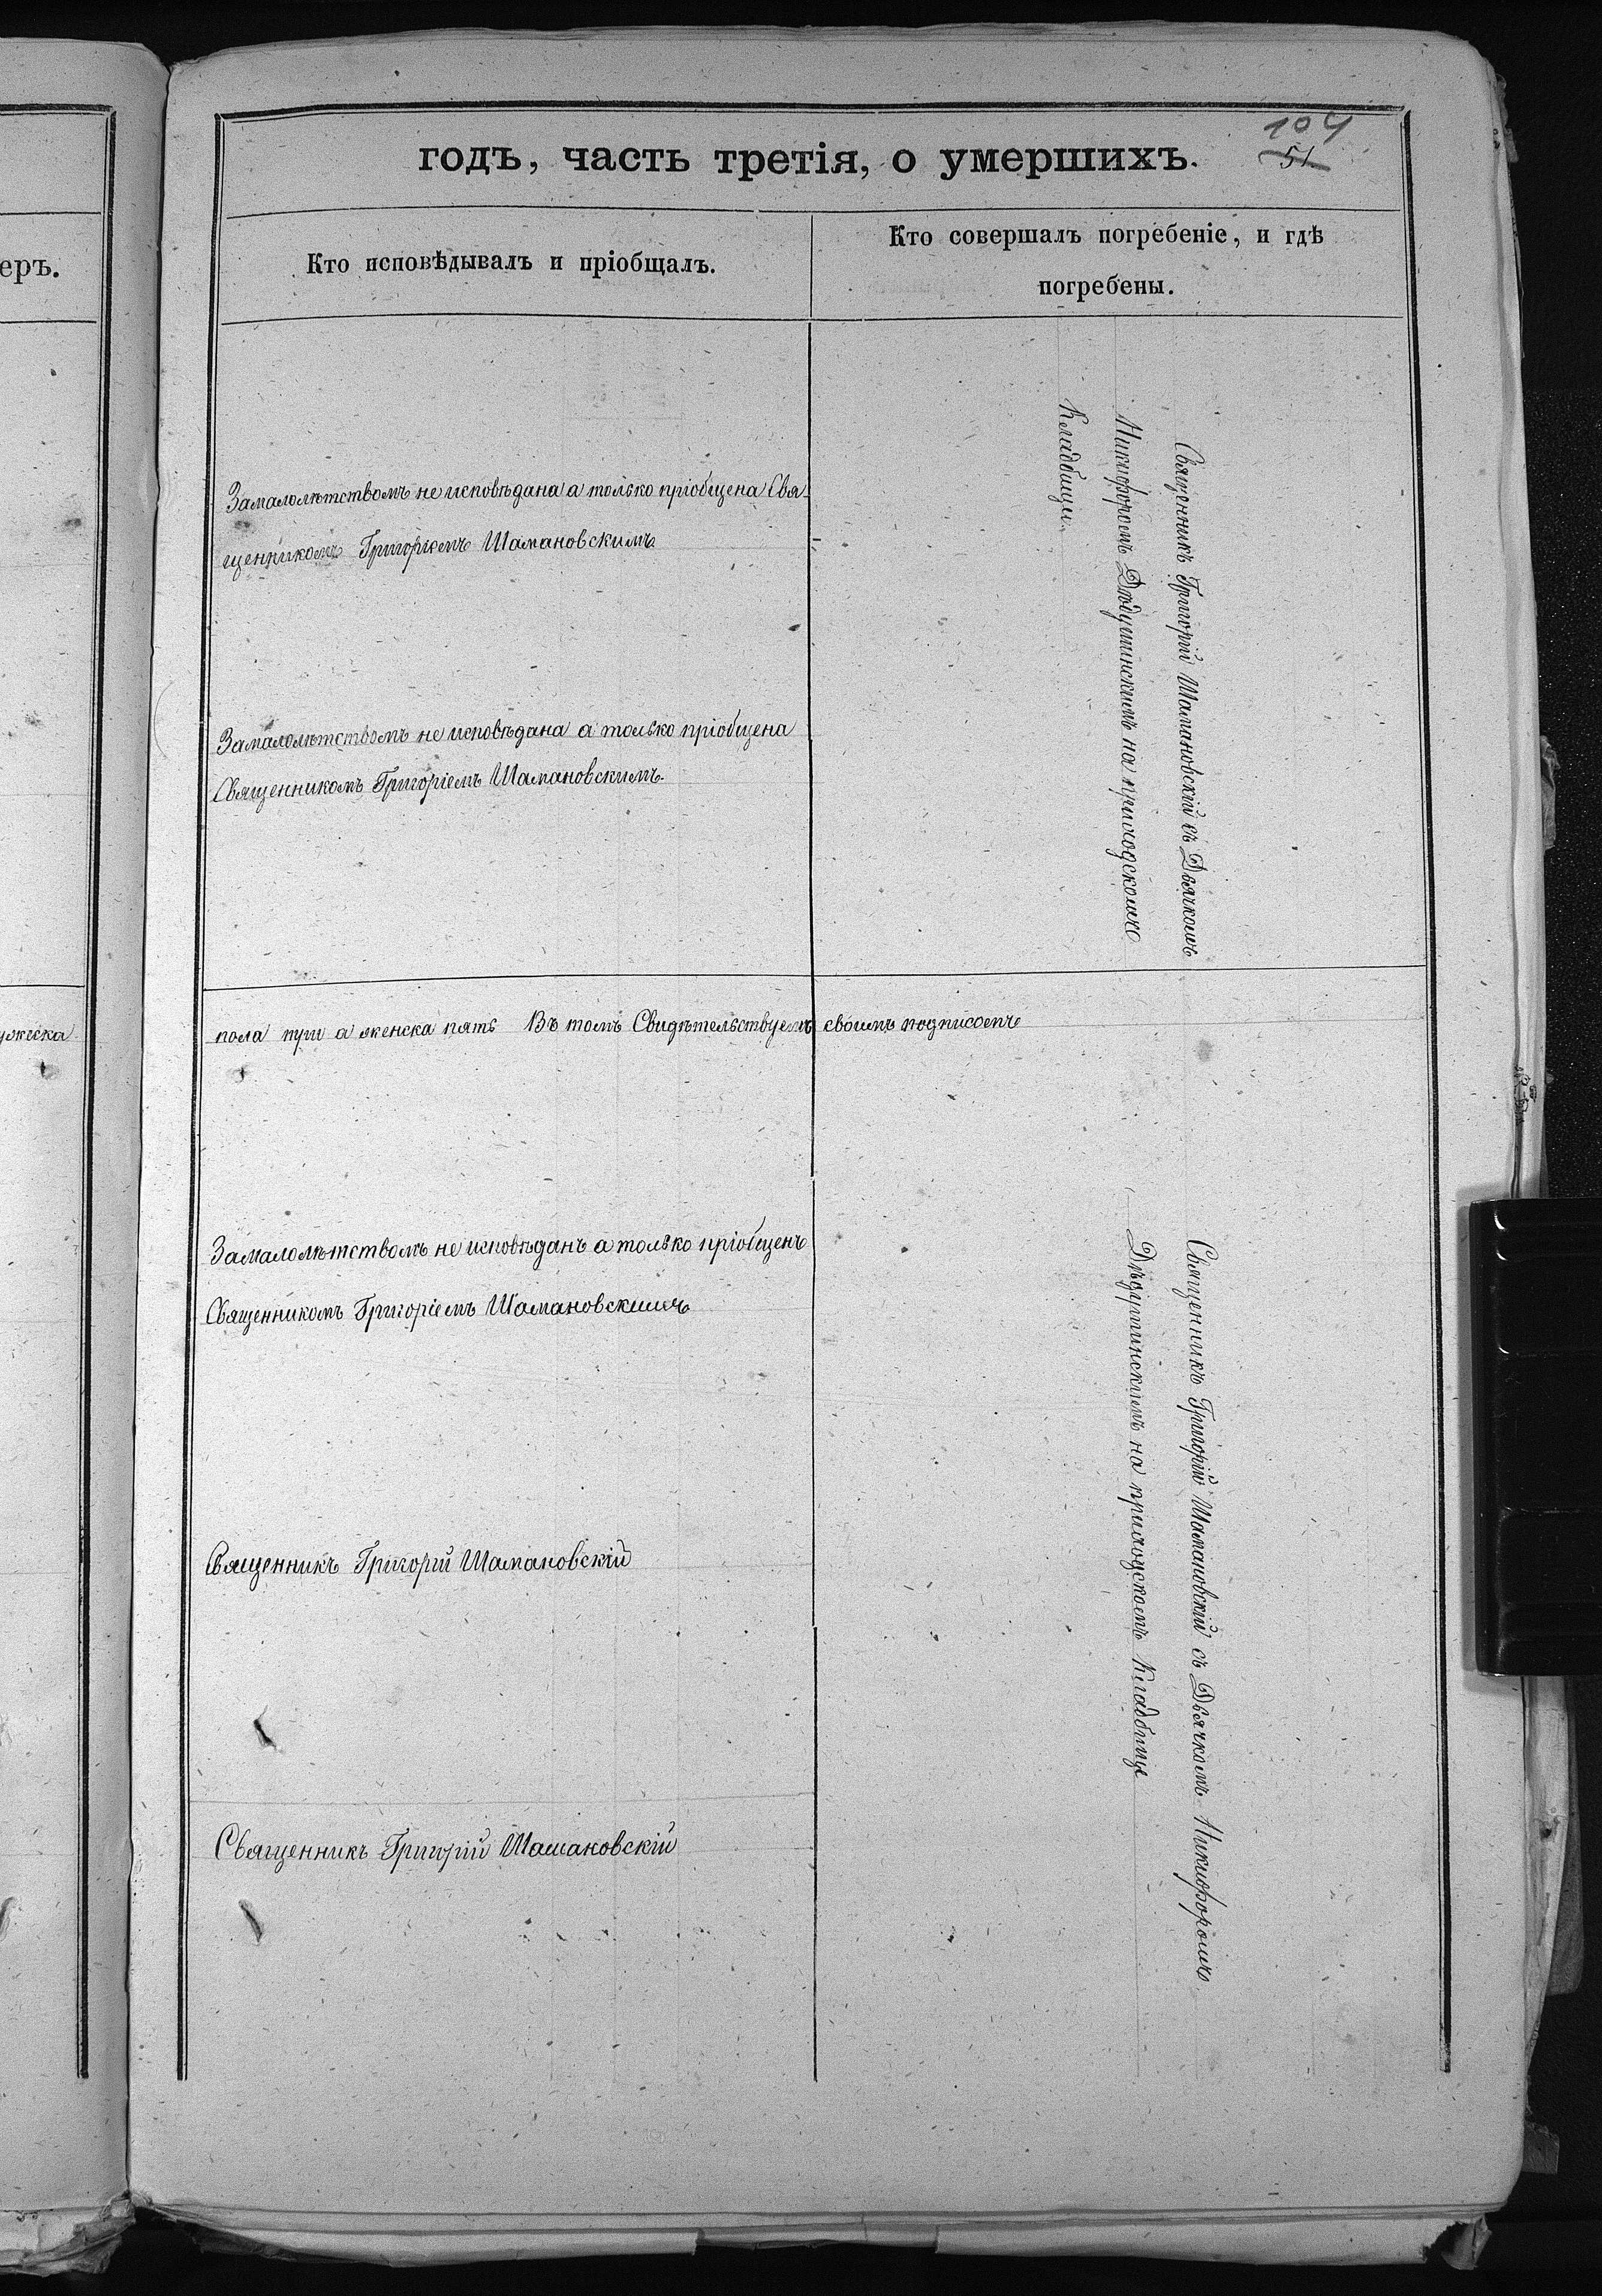 104
51
годъ, часть третія, о умершихъ.
еръ.
Кто исповѣдывалъ и пріобщалъ.
Кто совершалъ погребеніе, и гдѣ
погребены.
Замалолѣтствомъ не исповѣдана а только пріобщена Свя-
щенникомъ Григоріемъ Шамановскимъ.
Замалолѣтствомъ не исповѣдана а только пріобщена
Священникомъ Григоріемъ Шамановскимъ.
Священникъ Григорій Шамановскій съ Дьячкомъ
Никифоромъ на приходскомъ
Кладбищи.
пола три а женска пять Въ томъ Свидѣтельствуемъ своимъ подписомъ
Замалолѣтствомъ не исповѣданъ а только пріобщенъ
Священникомъ Григоріемъ Шамановскимъ
Священникъ Григорій Шамановскій
Священникъ Григорій Шамановскій
Священникъ Григорій Шамановскій съ Дьячкомъ Никифоромъ
на приходскомъ Кладбище